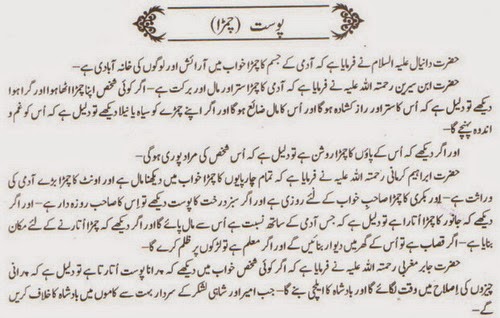 پوست (چمڑا)
حضرت دانیال علیہ السلام نے فرمایا ہے کہ آدمی کے جسم کا چمڑا خواب میں آرائش اور لوگوں کی خانہ آبادی ہے۔
حضرت ابن سیرین رحمتہ اللہ علیہ نے فرمایا ہے کہ آدمی کا چمڑا ستر اور مال اور برکت ہے۔ اگر کوئی شخص اپنا چمڑا اٹھا ہوا اور گرا ہوا
دیکھے تو دلیل ہے کہ اُس کا ستر اور راز کشادہ ہوگا اور اُس کا مال ضائع ہوگا اور اگر اپنے چمڑے کو سیاہ یا نیلا دیکھے تو دلیل ہے کہ اُس کو غم و
اندوہ پہنچے گا۔
اور اگر دیکھے کہ اُس کے پاؤں کا چمڑا روشن ہے تو دلیل ہے کہ اُس شخص کی مراد پوری ہوگی۔
حضرت ابراہیم کرمانی رحمتہ اللہ علیہ نے فرمایا ہے کہ تمام چارپایوں کا چمڑا خواب میں دیکھنا مال ہے اور اونٹ کا چمڑا بڑے آدمی کی
وراثت ہے۔ اور بکری کا چمڑا صاحبِ خواب کے لئے روزی ہے اور اگر سبز درخت کا پوست دیکھے تو اِس کا صاحب روزہ دار ہے۔ اور اگر
دیکھے کہ جانور کا چمڑا اُتارا ہے تو دلیل ہے کہ جس آدمی کے ساتھ نسبت ہے اُس سے مال پائے گا اور اگر دیکھے کہ چمڑا اُتارنے کے لئے مکان
بنایا ہے۔ اگر قصاب ہے تو اُس کے گھر میں دیوار بنائیں گے اور اگر معلم ہے تو لڑکوں پر ظلم کرے گا۔
حضرت جابر مغربی رحمتہ اللہ علیہ نے فرمایا ہے کہ اگر کوئی شخص خواب میں دیکھے کہ پرانا پوست اُتارتا ہے تو دلیل ہے کہ پرانی
چیزوں کی اِصلاح میں وقت لگائے گا اور بادشاہ کا ایلچی بنے گا۔ جب امیر اور شاہی لشکر کے سردار بہت سے کاموں میں بادشاہ کا خلاف کریں
گے۔